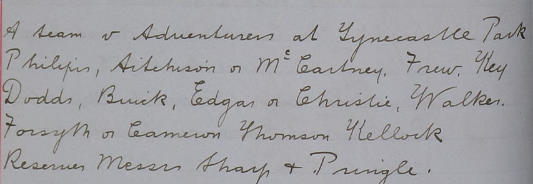 A team v Adventurers at Tynecastle Park
Philips, Aitchison or McCartney. Frew. Key
Dodds, Buick, Edgar or Christie, Walker.
Forsyth or Cameron Thomson Kellock
Reserves Messrs Sharp & Pringle.